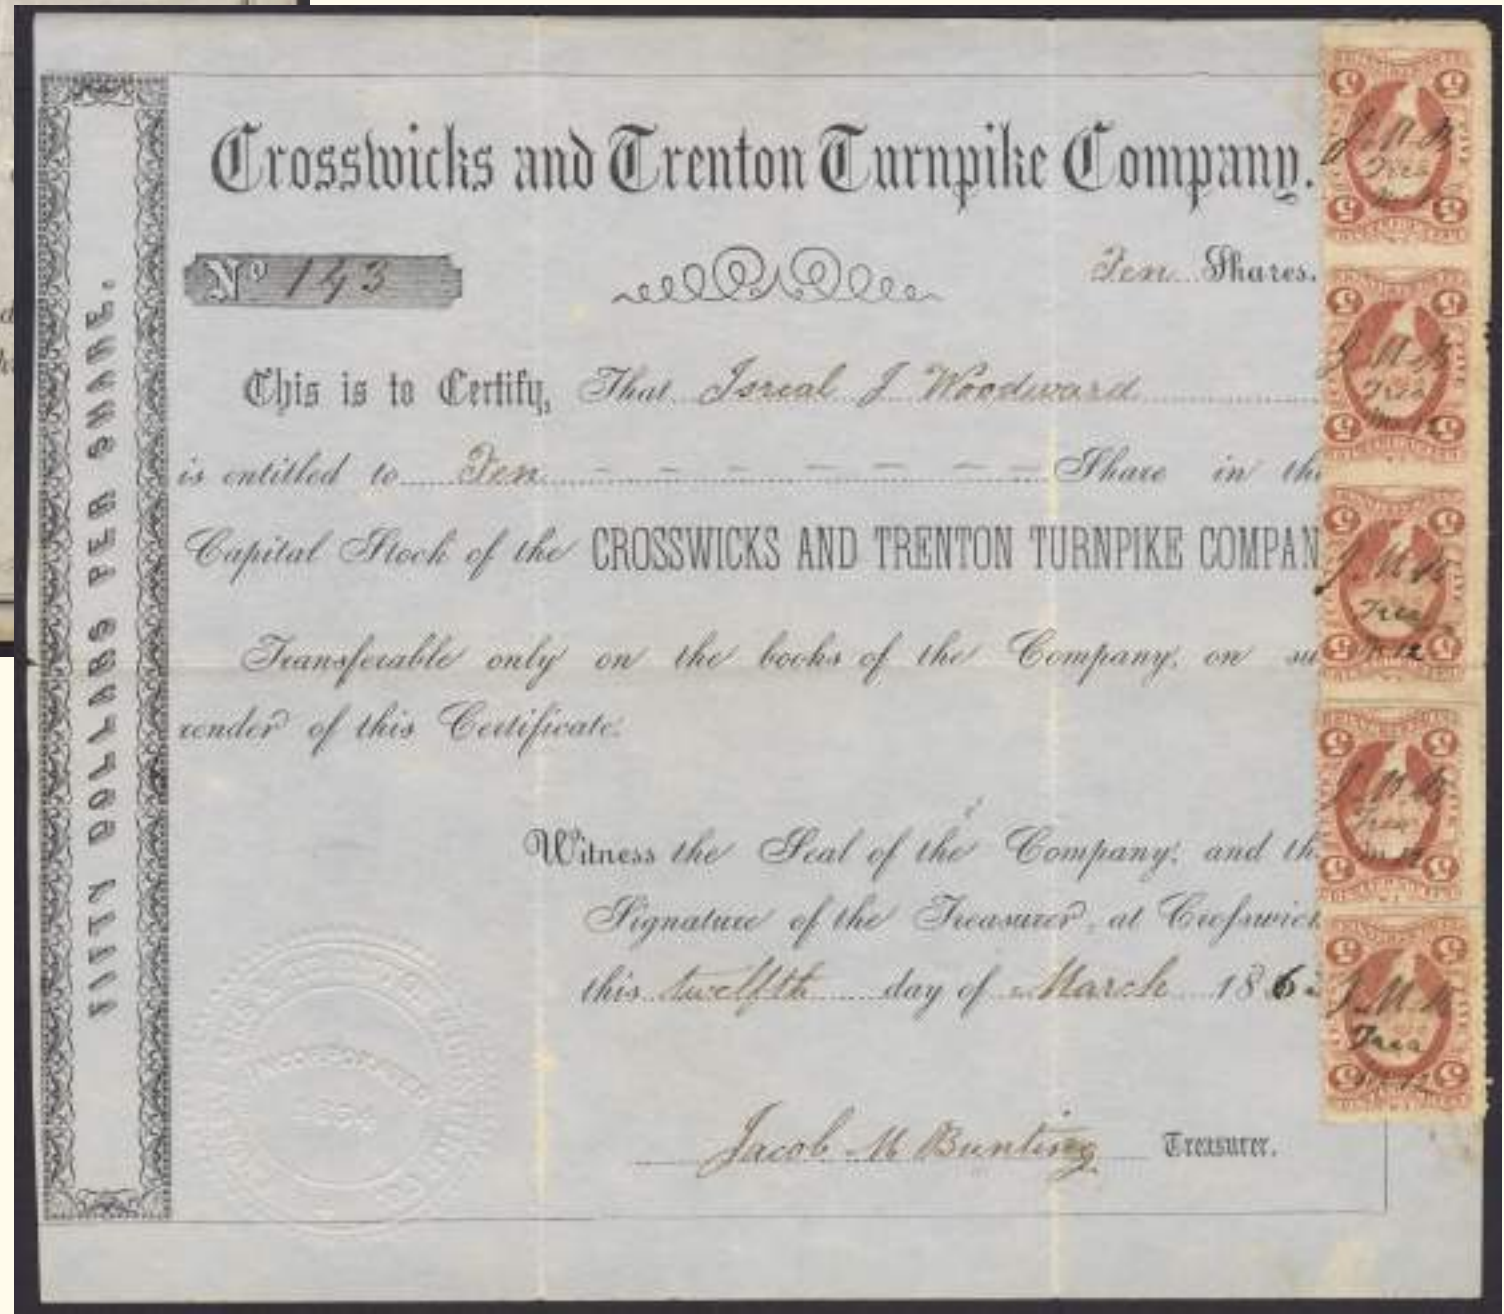 Crosswicks and Trenton Turnpike Company.
No 143
Ten Shares.
This is to Certify, That Isreal J Woodward
is entitled to Ten Share in the
Capital Stock of the CROSSWICKS AND TRENTON TURNPIKE COMPAN
Transferable only on the books of the Company, on su
render of this Certificate.
Witness the Seal of the Company, and th
Signature of the Treasurer, at Crosswick
this twelfth day of March 186
Jacob M Bunting Treasurer.
FIFTY DOLLARS PER SHARE.
INCORPORATED
5 5
J.M.B
Trea
5 5
5 5
J.M.B
Trea
M 12
5 5
5 5
J.M.B
Trea
M 12
5 5
5 5
J.M.B
Trea
M 12
5 5
5 5
J.M.B
Trea
M 12
5 5